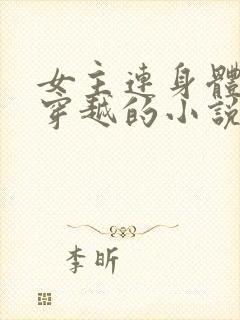 女主連身體
穿越的小說
李昕